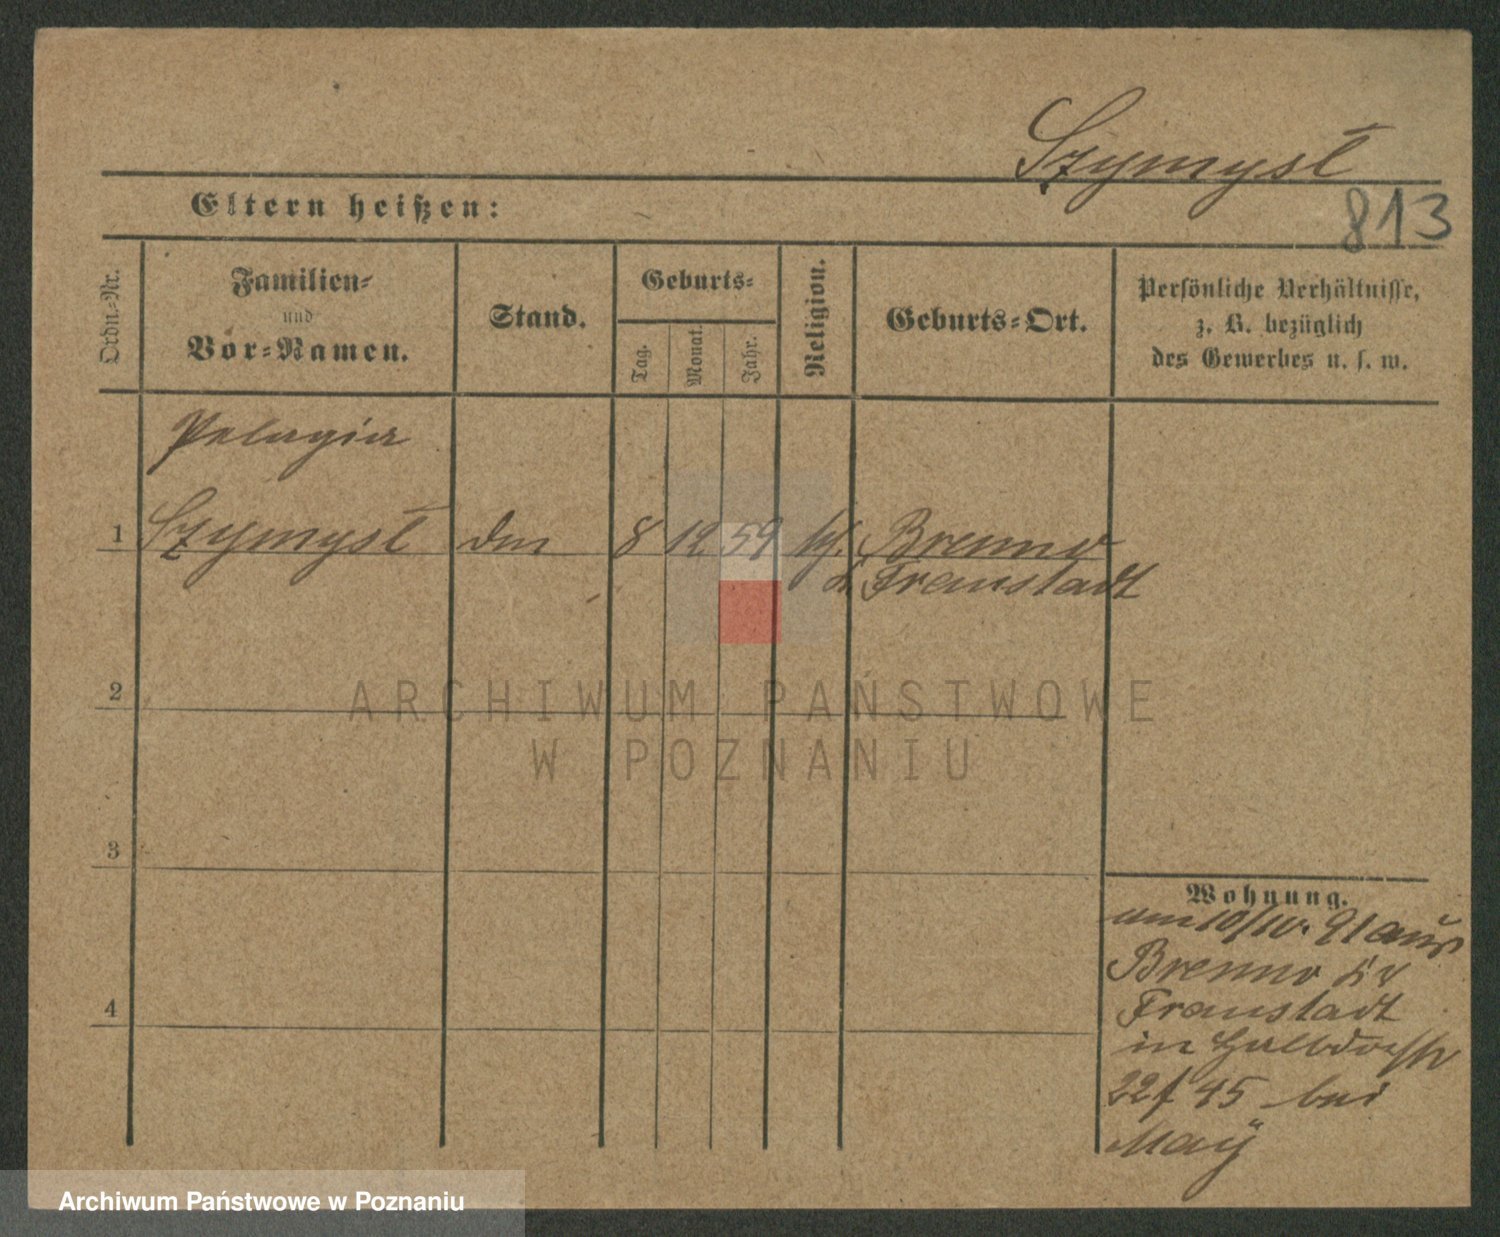 Szymysł
813
Eltern heißen:
Ordn.-Nr.
Familien-
und
Vor-Namen.
Stand.
Geburts-
Tag.
Monat.
Jahr.
Religion.
Geburts-Ort.
Persönliche Verhältnisse,
z. B. bezüglich
des Gewerbes u. s. w.
Pelagia
1 Szymysł 8 12 59 Brenno
Fraustadt
2
3
4
Wohnung.
am 10/10. 91 aus
Brenno
Fraustadt
in Halbdorfstr
22 45 bei
May
ARCHIWUM PAŃSTWOWE
W POZNANIU
Archiwum Państwowe w Poznaniu